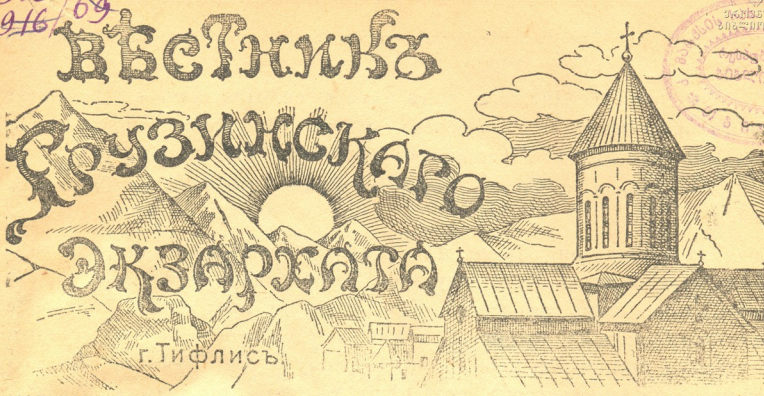 916/69
ВѢСТНИКЪ
ГРУЗИНСКАГО
ЭКЗАРХАТА
г. Тифлисъ.